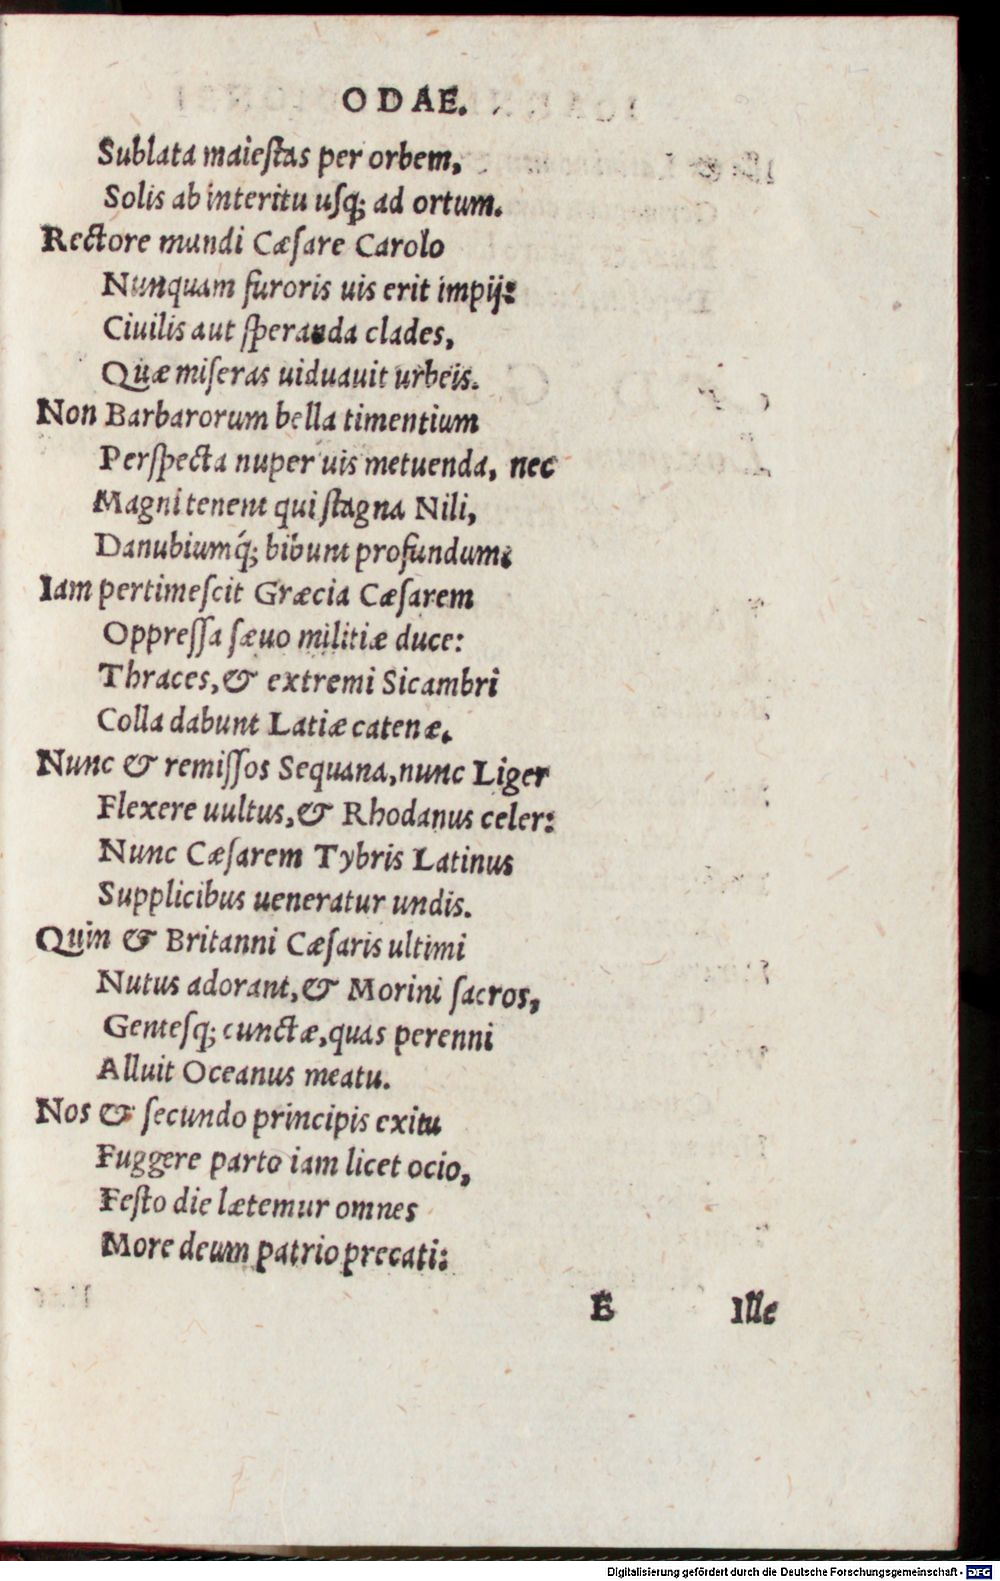 ODAE.
Sublata maiestas per orbem,
Solis ab interitu usq; ad ortum.
Rectore mundi Cæsare Carolo
Nunquam furoris uis erit impij:
Ciuilis aut speranda clades,
Quæ miseras uiduauit urbeis.
Non Barbarorum bella timentium
Perspecta nuper uis metuenda, nec
Magni tenent qui stagna Nili,
Danubiumq́; bibunt profundum:
Iam pertimescit Græcia Cæsarem
Oppressa sæuo militiæ duce:
Thraces, & extremi Sicambri
Colla dabunt Latiæ catenæ.
Nunc & remissos Sequana, nunc Liger
Flexere uultus, & Rhodanus celer:
Nunc Cæsarem Tybris Latinus
Supplicibus ueneratur undis.
Quin & Britanni Cæsaris ultimi
Nutus adorant, & Morini sacros,
Gentesq; cunctæ, quas perenni
Alluit Oceanus meatu.
Nos & secundo principis exitu
Fuggere parto iam licet ocio,
Festo die lætemur omnes
More deum patrio precati:
E Ille
Digitalisierung gefördert durch die Deutsche Forschungsgemeinschaft - DFG